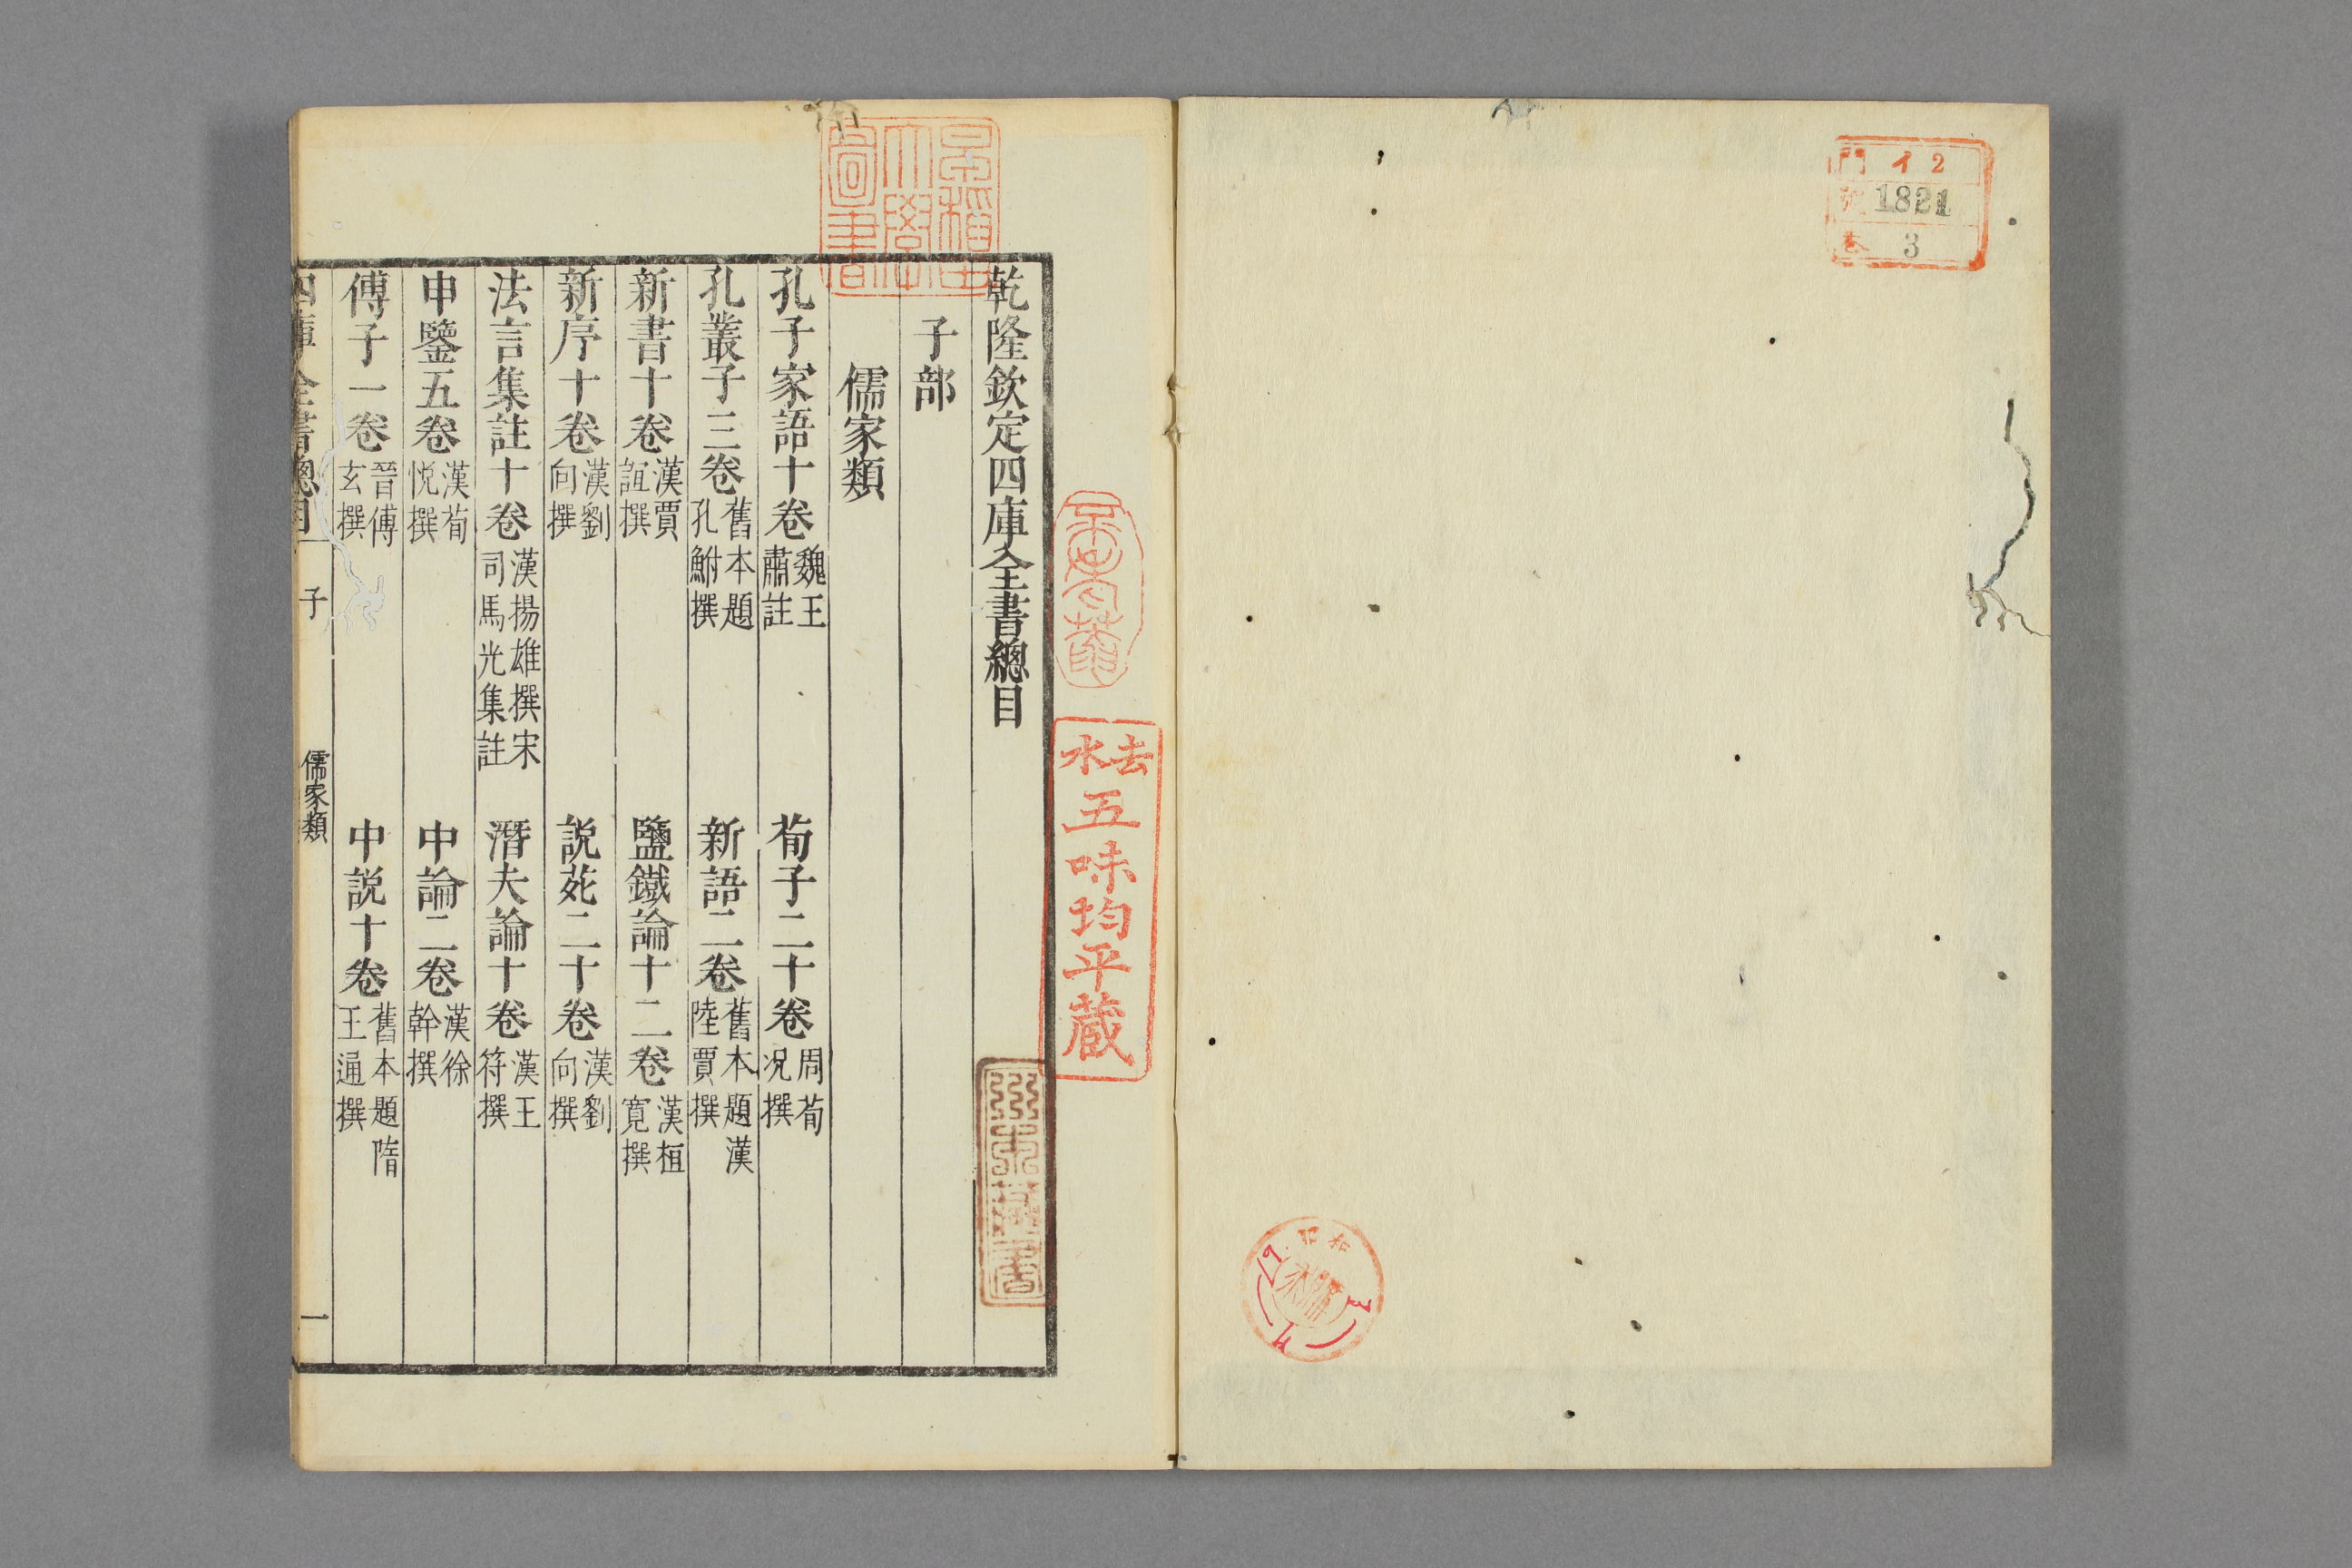 門 イ 2
號 1821
巻 3
乾隆欽定四庫全書總目
子部
儒家類
孔子家語十卷 魏王肅註
荀子二十卷 周荀况撰
孔叢子三卷 舊本題孔鮒撰
新語二卷 舊本題漢陸賈撰
新書十卷 漢賈誼撰
鹽鐵論十二卷 漢桓寛撰
新序十卷 漢劉向撰
説苑二十卷 漢劉向撰
法言集註十卷 漢揚雄撰宋司馬光集註
潛夫論十卷 漢王符撰
申鑒五卷 漢荀悦撰
中論二卷 漢徐幹撰
傅子一卷 晉傅玄撰
中説十卷 舊本題隋王通撰
四庫全書總目 子 儒家類 一
早稻田大學圖書
去水五味均平蔵